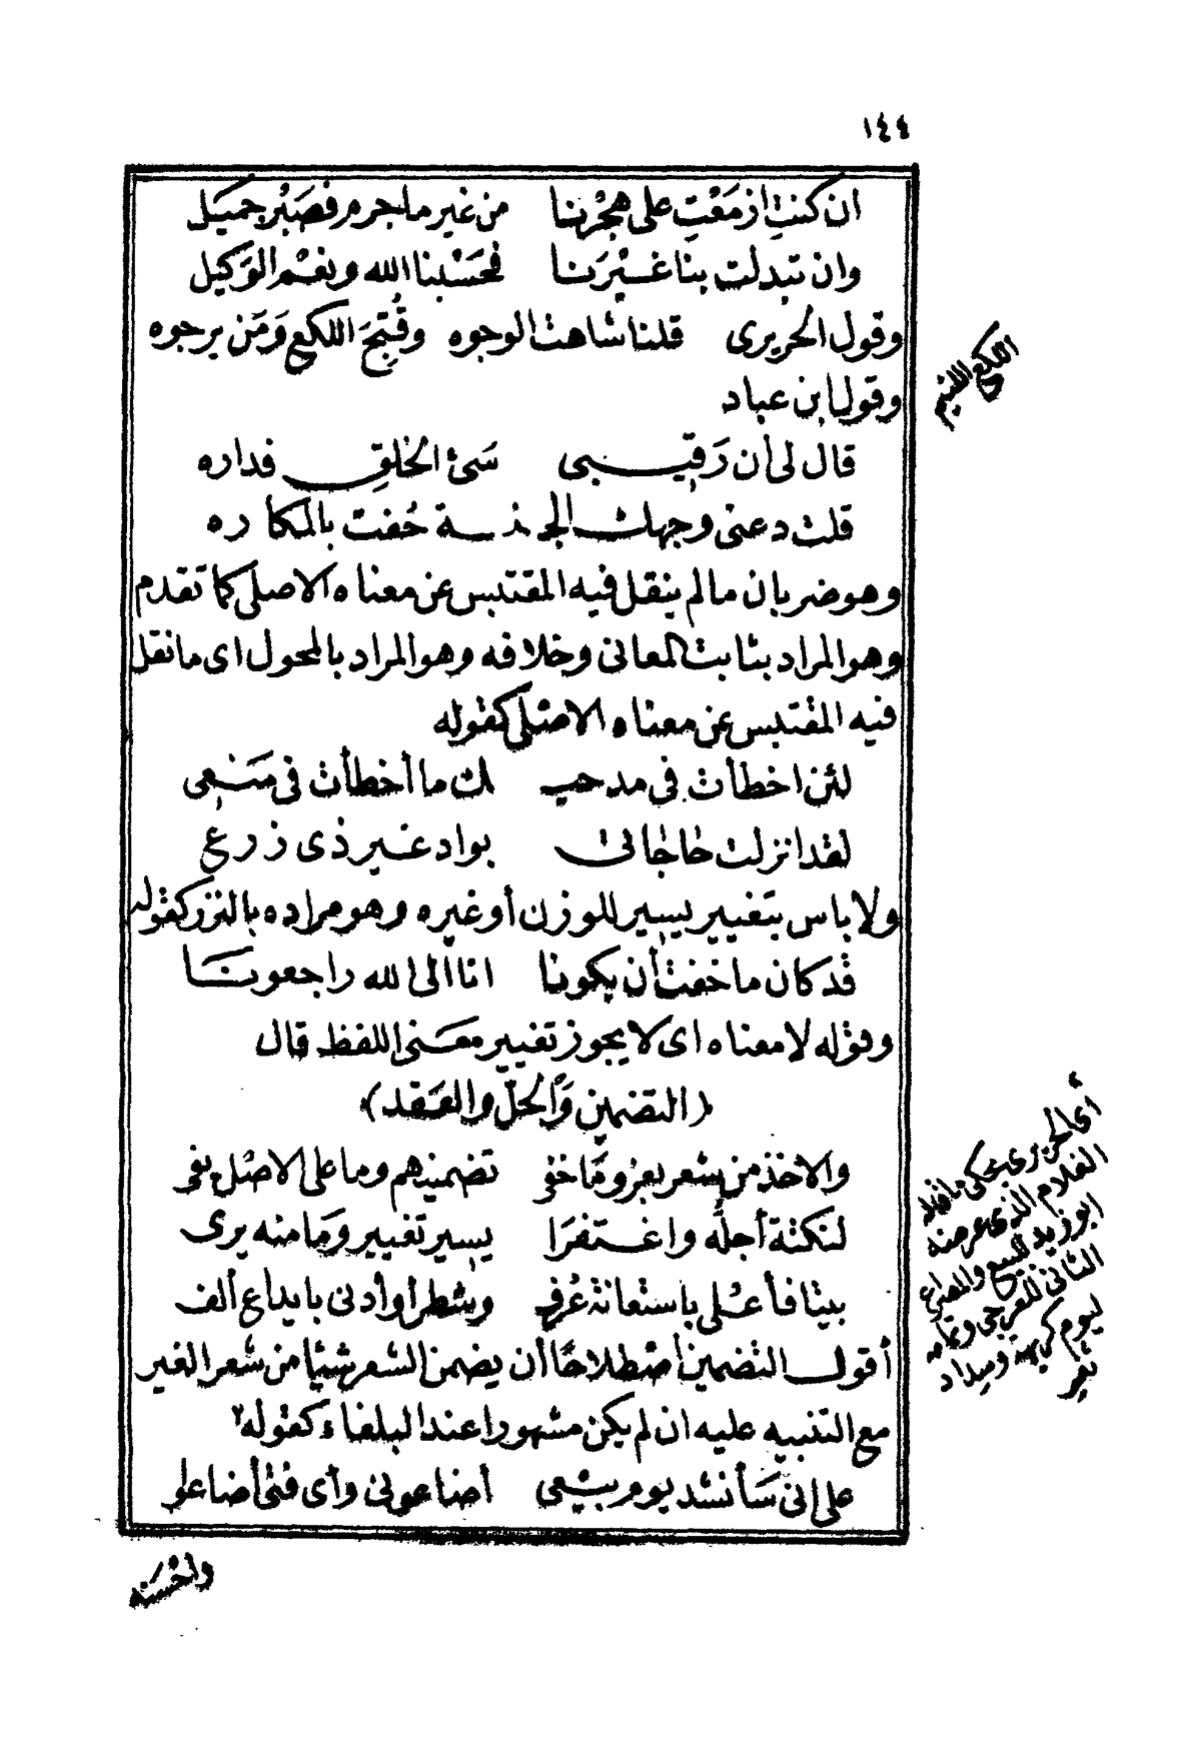 ١٤٤
ان كنتِ ازمَعْتِ على هجْرنا من غير ما جرم فصَبْر جميَل
وان تبدلت بنا غيْرَنا فحَسْبنا الله ونعْم الوَكيل
وقول الحريرى قلنا شاهت الوجوه وقُبِّحَ اللكع وَمَن يرجوه
وقول ابن عباد
قال لى أن رَقيبى سَىئ الخلقِ فداره
قلت دعنى وجهك الجنة حُفت بالمكاره
وهو ضربان ما لم ينقل فيه المقتبس عن معناه الاصلى كما تقدم
وهو المراد بثابت المعانى وخلافه وهو المراد بالمحول اى ما نقل
فيه المقتبس عن معناه الاصْلى كقوله
لئن اخطأت فى مدحيـ ـك ما أخطأت فى مَنعى
لقد انزلت حاجاتى بواد غير ذى زرع
ولا باس بتغيير يسير للوزن أو غيره وهو مراده بالنزر كقوله
قد كان ما خفت أن يكونا انا الى الله راجعونا
وقوله لا معناه اى لا يجوز تغيير معَنى اللفظ قال
(التضمين وَالحلّ والعَقد)
والاخذ من شعر بعزو مَا خفى تضمينهم وما على الاصْل يفى
لنكتة أجلُّه واغتفرَا يسير تغيير وَمَا منه يرى
بيتا فأعْلى باستعانة عُرف وشطرا وأدنى بايداع ألف
أقول التضمين اصْطلاحًا أن يضمن الشعر شيئا من شعر الغير
مع التنبيه عليه ان لم يكن مشهورا عند البلغاء كقوله٢
على انى سَأنشد يوم بيْعى أضاعونى وأى فتى أضاعوا
واحْسَنه
اللكع اللئيم
٢
أى الحريرى يحكى ما قاله
الغلام الذى عرضه
ابو زيد للبيع والمصراع
الثانى للعرجى وتمامه
ليوم كريهة وسداد
ثغر